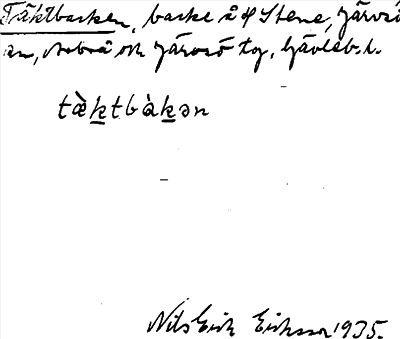 Täktbacken, backe å f Stene, Järvsö
sn, Arbrå och Järvsö tg, Gävleb. l.
tæ̀ktbàkən
Nils Erik Eriksson 1935.